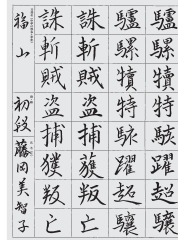 驢騾犢特駭躍超驤
驢騾犢特駭躍超驤
誅斬賊盗捕獲叛亡
誅斬賊盗捕獲叛亡
福山 初段 藤岡美智子